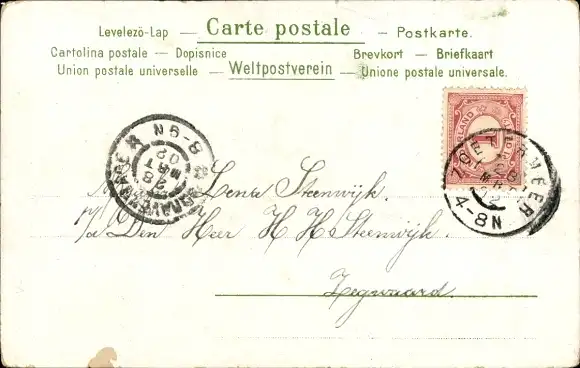 Levelezö-Lap — Carte postale — Postkarte.
Cartolina postale — Dopisnice Brevkort — Briefkaart
Union postale universelle — Weltpostverein — Unione postale universale.
8-9N
MRT
02
4-8N
1
Lena Steenwijk.
p/a Den Heer H H Steenwijk.
Zegwaard.